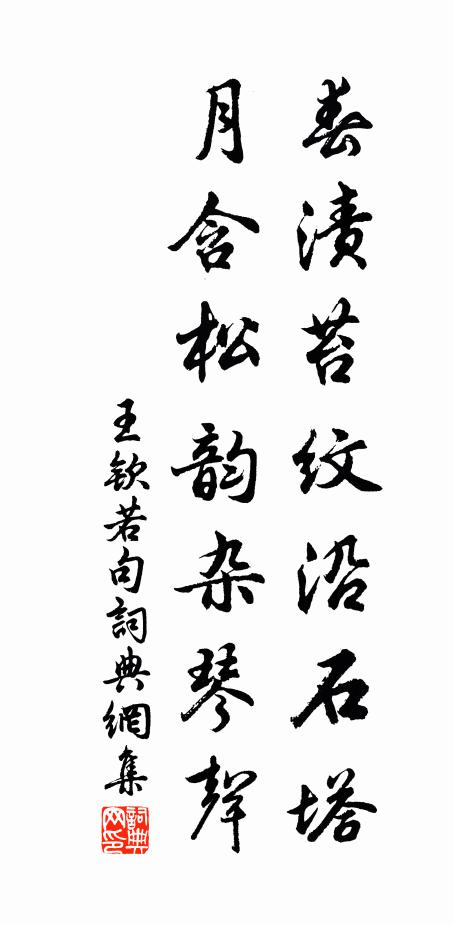 春渍苔纹沿石塔
月含松韵杂琴聲
王钦若句詞典網集
詞典网印